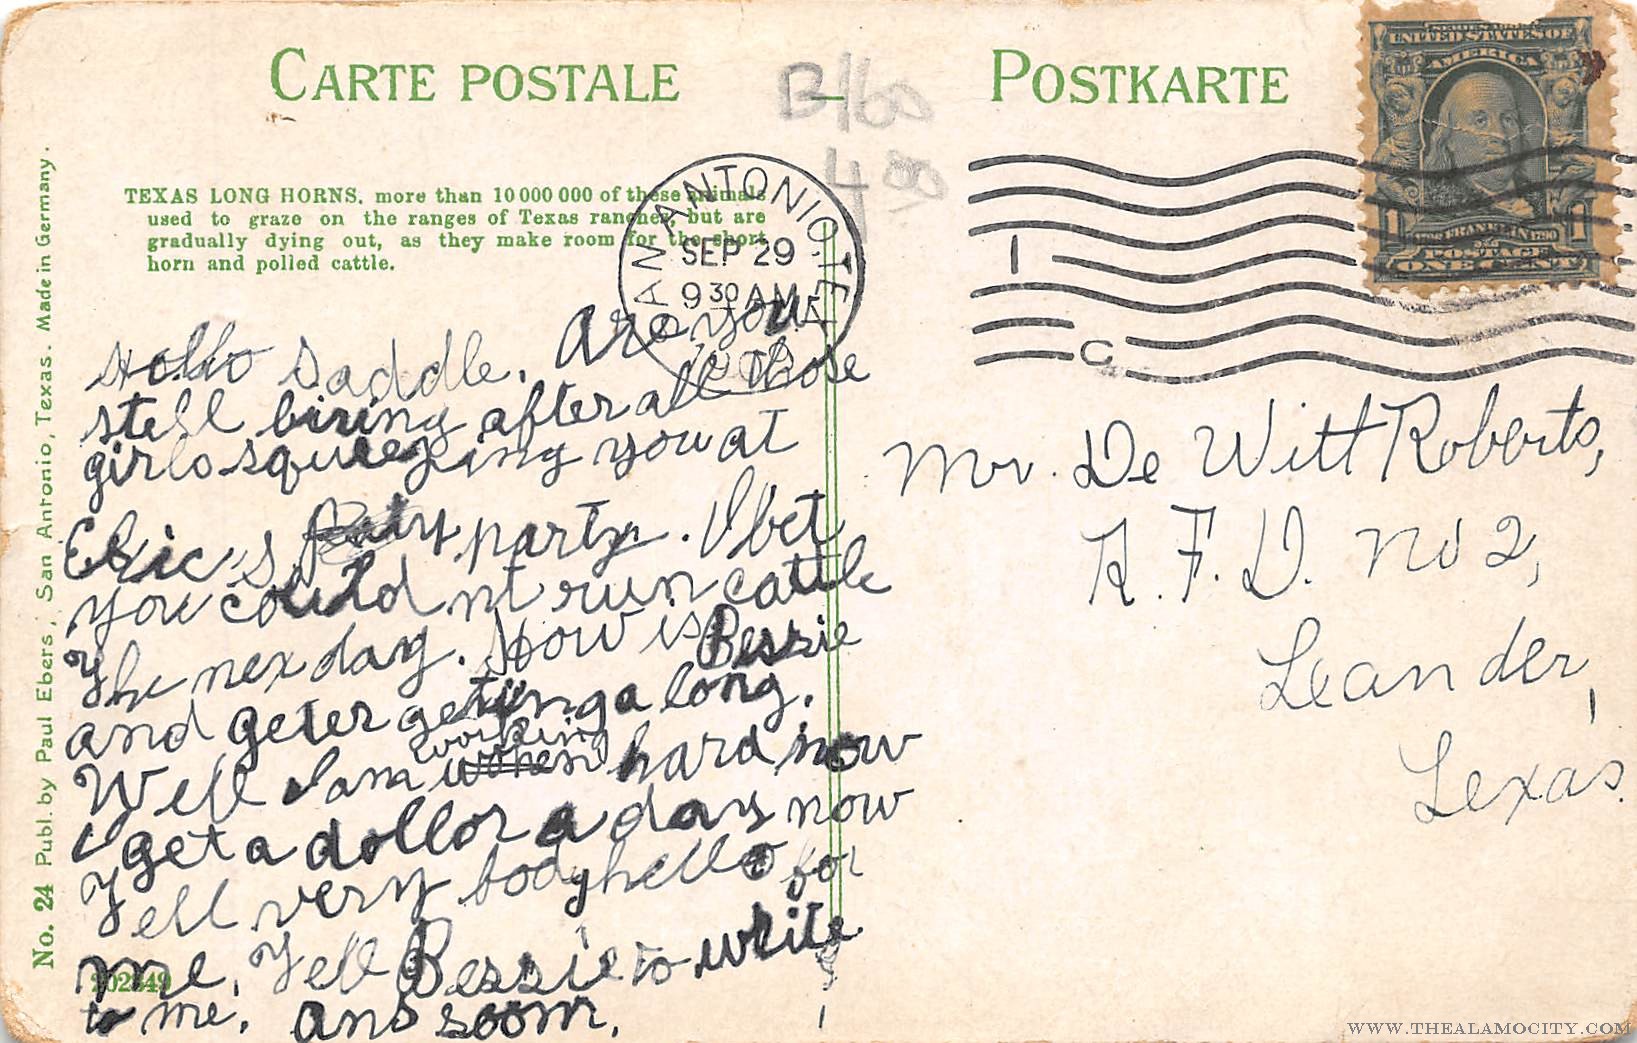 CARTE POSTALE
POSTKARTE
B/60
4 00
UNITED STATES OF
AMERICA
FRANKLIN
POSTAGE
ONE CENT
TEXAS LONG HORNS, more than 10 000 000 of these animals
used to graze on the ranges of Texas ranches, but are
gradually dying out, as they make room for the short
horn and polled cattle.
SAN ANTONIO, TEX
SEP 29
9 30 AM
1
C
No. 24 Publ. by Paul Ebers, San Antonio, Texas. Made in Germany.
202849
Hello Saddle. Are you
still biring after all those
girls squeezing you at
Elric's party. I bet
you could nt run cattle
The nex day. How is Bessie
and geter getting a long.
Well I am working hard now
I get a dollor a day now
Tell very body hello for
me. Tell Bessie to write
to me. ans soom.
Mr. De Witt Roberts,
R. F. D. No 2,
Leander,
Texas.
WWW.THEALAMOCITY.COM